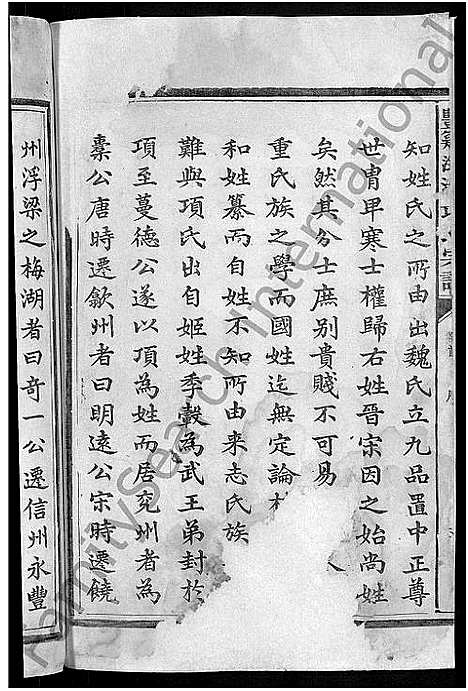 知姓氏之所由出魏氏立九品置中正尊
世胄卑寒士權歸右姓晉宗因之始尚姓
矣然其分士庶別貴賤不可易
重氏族之學而國姓迄無定論
和姓纂而自姓不知所由来志氏族
難與項氏出自姬姓季毂為武王弟封於
項至蔓德公遂以項為姓而居兖州者為
橐公唐時遷歙州者曰明遠公宗時遷饒
州浮梁之梅湖者曰奇一公遷信州永豐
FamilySearch International